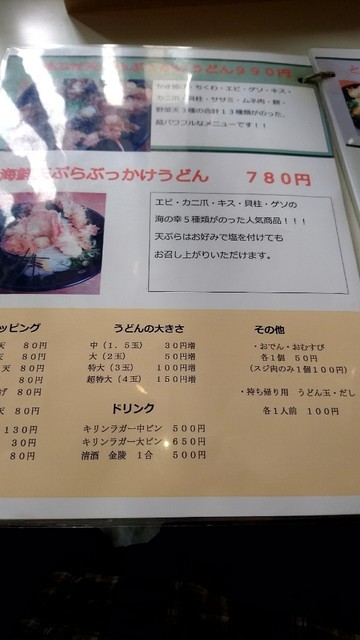 うどん９９０円
ちくわ・エビ・ゲソ・キス・
カニ爪・貝柱・ササミ・ムネ肉・餅・
野菜天３種の合計１３種類がのった、
超パワフルなメニューです！！
海鮮天ぷらぶっかけうどん　７８０円
エビ・カニ爪・キス・貝柱・ゲソの
海の幸５種類がのった人気商品！！！
天ぷらはお好みで塩を付けても
お召し上がりいただけます。
ッピング
天　８０円
天　８０円
天　８０円
８０円
げ　８０円
天　８０円
１３０円
３０円
８０円
うどんの大きさ
中（１．５玉）　３０円増
大（２玉）　５０円増
特大（３玉）　１００円増
超特大（４玉）　１５０円増
ドリンク
キリンラガー中ビン　５００円
キリンラガー大ビン　６５０円
清酒　金陵　１合　５００円
その他
・おでん・おむすび
各１個　５０円
（スジ肉のみ１個１００円）
・持ち帰り用　うどん玉・だし
各１人前　１００円